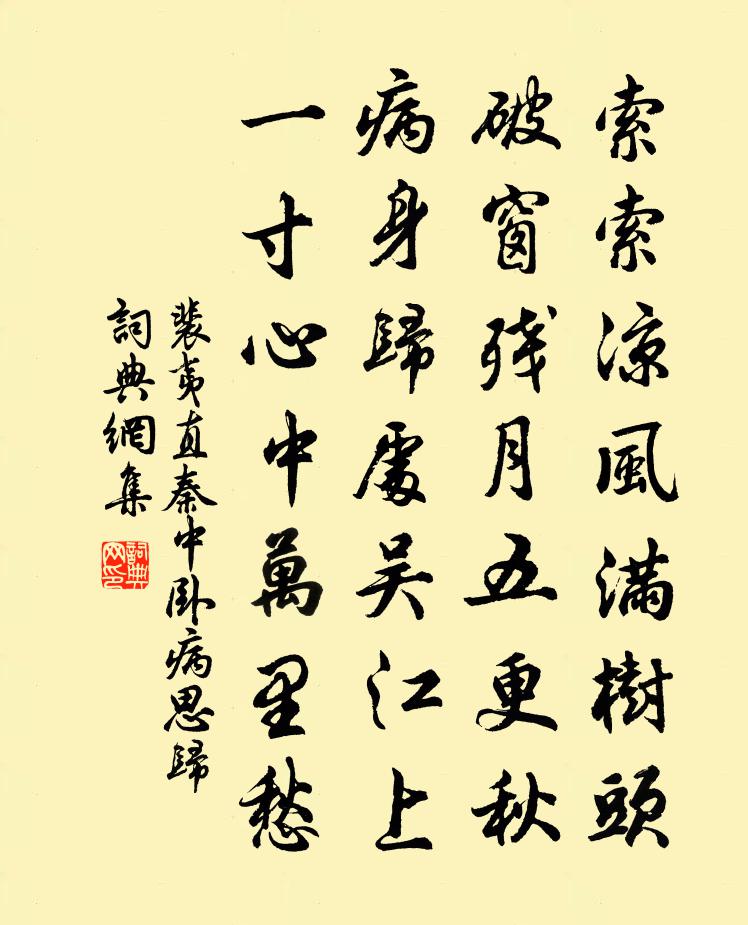 索索涼風滿樹頭
破窗残月五更秋
病身歸處吴江上
一寸心中萬里愁
裴夷直秦中卧病思歸
詞典網集
詞典
网印